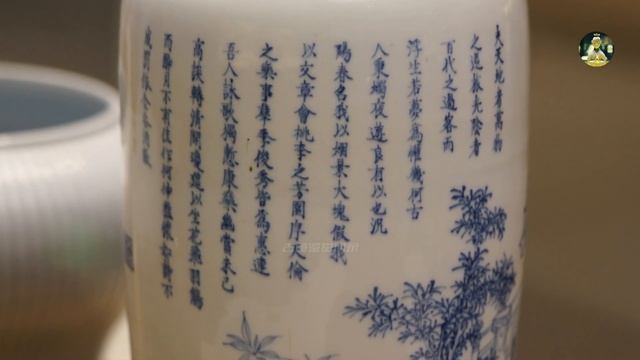 夫天地者萬物
之逆旅光陰者
百代之過客而
浮生若夢為懽幾何古
人秉燭夜遊良有以也況
陽春召我以煙景大塊假我
以文章會桃李之芳園序天倫
之樂事羣季俊秀皆為惠連
吾人詠歌獨慚康樂幽賞未已
高談轉清開瓊筵以坐花飛羽觴
而醉月不有佳作何伸雅懷如詩不
成罰依金谷酒數